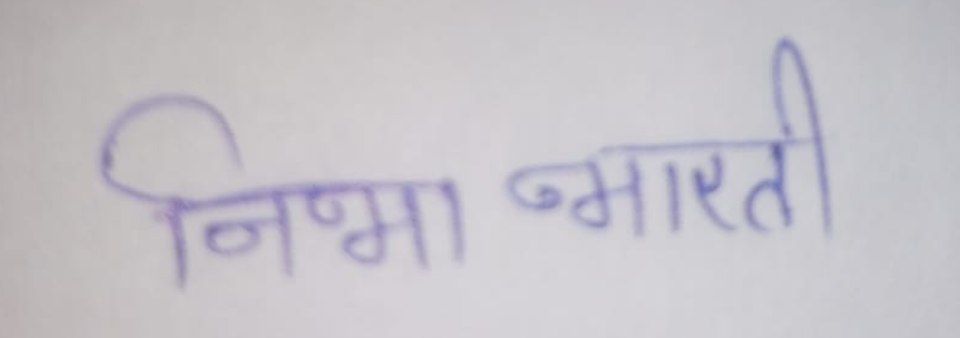 निभा भारती